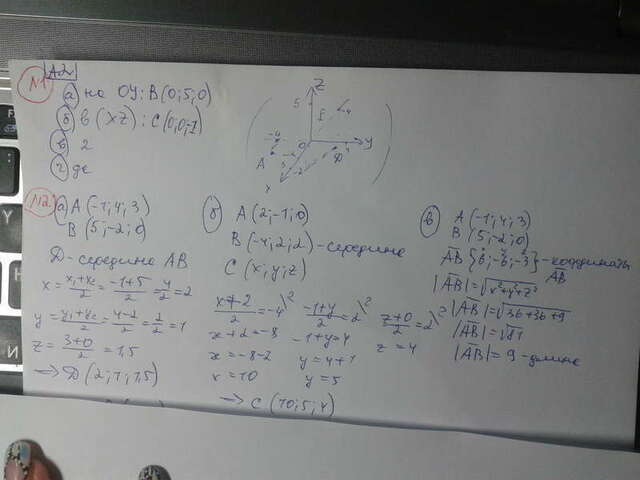 А2
№1
а) на ОУ: В(0;5;0)
б) в (XZ): С(0;0;-1)
в) 2
г) да
Z
5
4
-4
О
У
А
Д
-2
х
№2
а) А(-1;4;3)
В(5;-2;0)
Д-середина АВ
x = x₁+x₂/2 = -1+5/2 = 4/2 = 2
y = y₁+y₂/2 = 4-2/2 = 2/2 = 1
z = 3+0/2 = 1,5
→ Д(2;1;1,5)
б) А(2;-1;0)
В(-4;2;2) - середина
С(x;y;z)
x+2/2 = -4 \²
x+2 = -8
x = -8-2
x = 10
-1+y/2 = 2 \²
-1+y = 4
y = 4+1
y = 5
z+0/2 = 2 \²
z = 4
→ С(10;5;4)
в) А(-1;4;3)
В(5;-2;0)
АВ{6;-6;-3} - координаты
АВ
|АВ| = √x²+y²+z²
|АВ| = √36+36+9
|АВ| = √81
|АВ| = 9 - длина